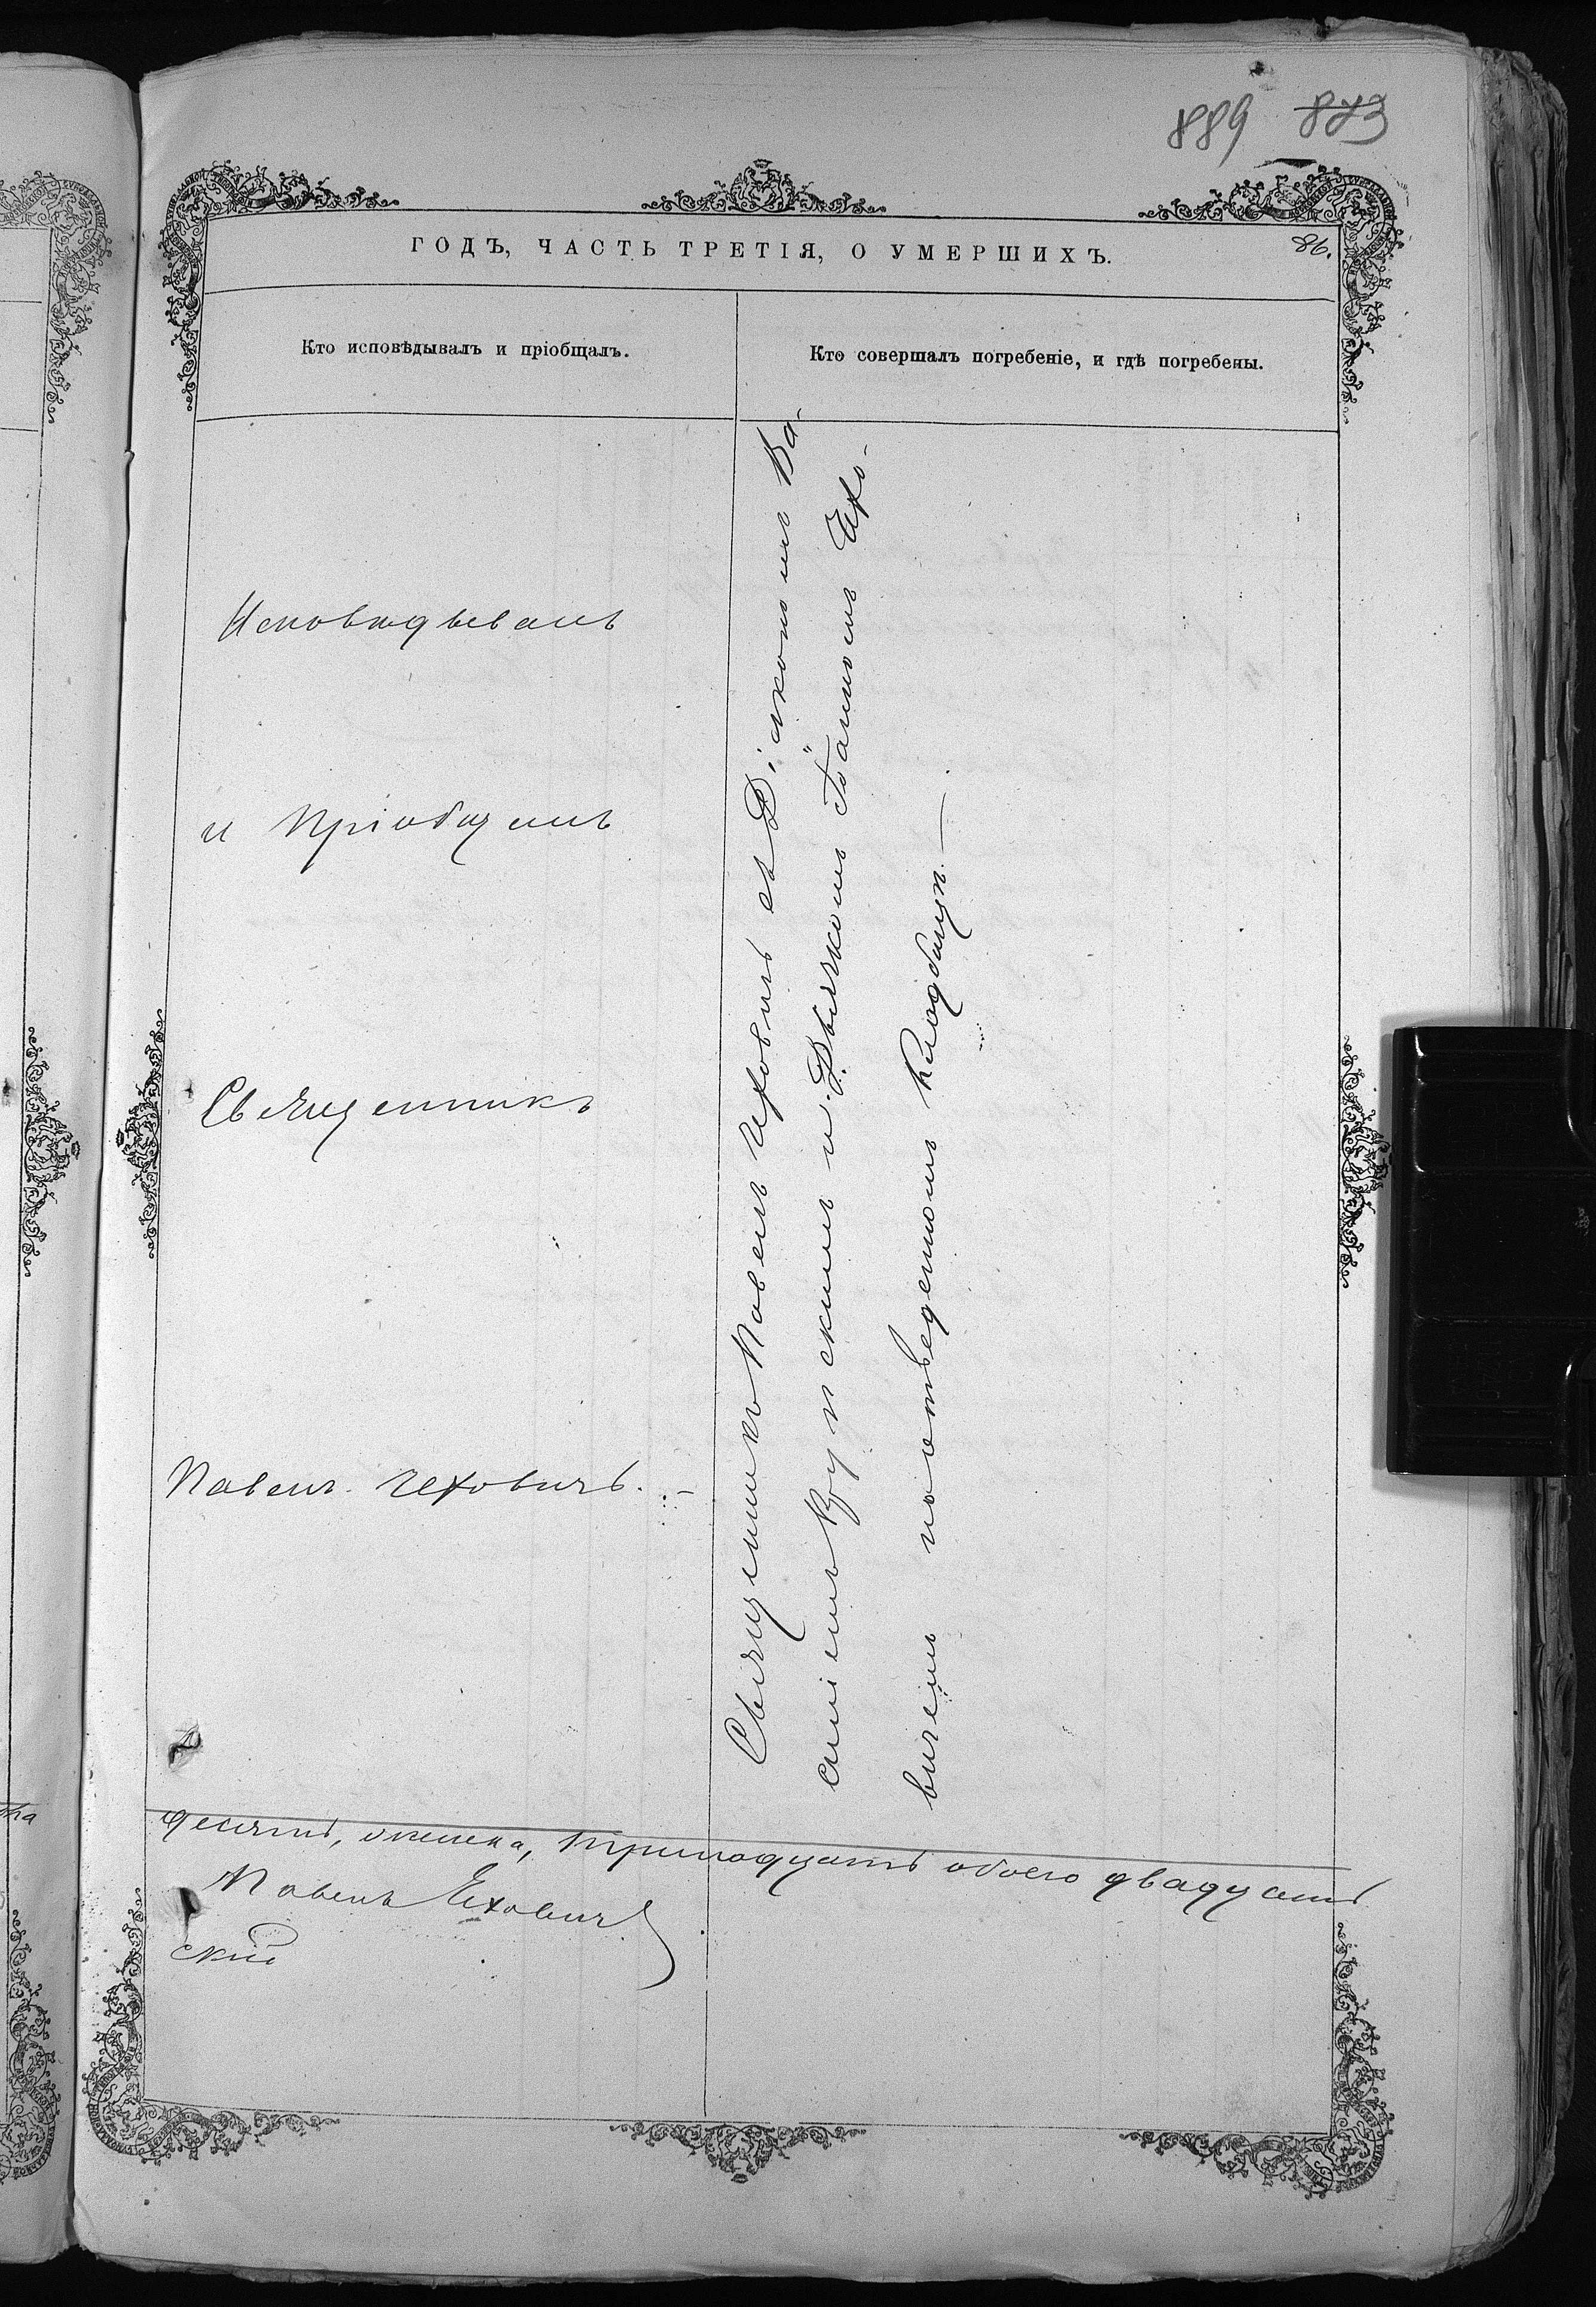 889 873
ГОДЪ, ЧАСТЬ ТРЕТІЯ, О УМЕРШИХЪ.
86.
Кто исповѣдывалъ и пріобщалъ.
Кто совершалъ погребеніе, и гдѣ погребены.
Исповѣдывалъ
и пріобщалъ
Священникъ
Павелъ Чеховичъ. -
Священникъ Павелъ Чеховичъ съ Діакономъ Ва-
силіемъ и Дьячкомъ Іоанномъ Чехо-
вичемъ на отведенномъ кладбищѣ. —
десять, женска, тринадцать обоего двадцать
Павелъ Чеховичъ
скій